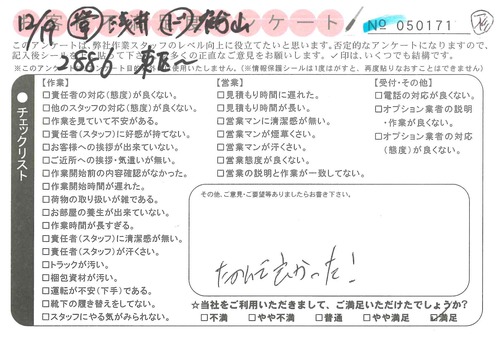 お客様アンケート
12/9
№ 050171
このアンケートは、弊社作業スタッフのレベル向上に役立てたいと思います。否定的なアンケートになりますので、
※このアンケート
※情報保護シールは1度はがすと、再度貼りなおすことはできません
チェックリスト
【作業】
□責任者の対応(態度)が良くない。
□他のスタッフの対応(態度)が良くない。
□作業を見ていて不安がある。
□責任者(スタッフ)に好感が持てない。
□お客様への挨拶が出来ていない。
□ご近所への挨拶・気遣いが無い。
□作業開始前の内容確認がなかった。
□作業開始時間が遅れた。
□荷物の取り扱いが雑である。
□お部屋の養生が出来ていない。
□作業時間が長すぎる。
□責任者(スタッフ)に清潔感が無い。
□責任者(スタッフ)が汗くさい。
□トラックが汚い。
□梱包資材が汚い。
□運転が不安(下手)である。
□靴下の履き替えをしてない。
□スタッフにやる気がみられない。
【営業】
□見積もり時間に遅れた。
□見積もり時間が長い。
□営業マンに清潔感が無い。
□営業マンが煙草くさい。
□営業マンが汗くさい。
□営業態度が良くない。
□営業の説明と作業が一致してない。
【受付・その他】
□電話の対応が良くない。
□オプション業者の説明
・作業が良くない。
□オプション業者の対応
(態度)が良くない。
その他、ご意見・ご要望等ありましたらお書き下さい。
たのんで良かった!
☆当社をご利用いただきまして、ご満足いただけたでしょうか?
□不満 □やや不満 □普通 □やや満足 ☑満足